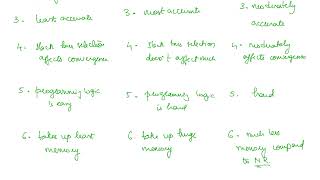 3. least accurate
3. most accurate
3. moderately accurate
4. Slack bus selection affects convergence
4. Slack bus selection doesn't affect much
4. moderately affects convergence
5. programming logic is easy
5. programming logic is hard
5. hard
6. take up least memory
6. take up huge memory
6. much less memory compared to NR